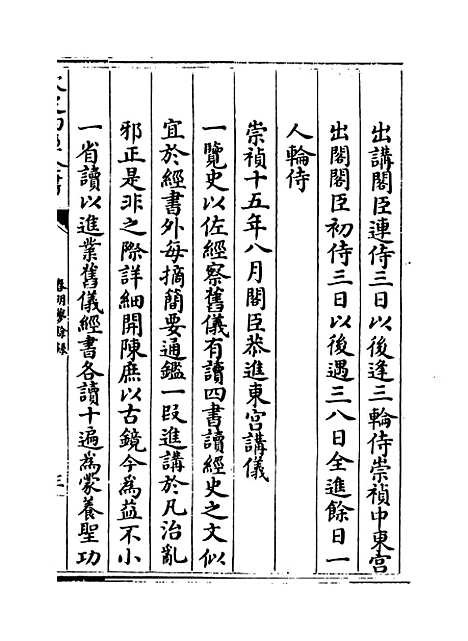 出講閣臣連侍三日以後逢三輪侍崇禎中東宫
出閣閣臣初侍三日以後遇三八日全進餘日一
人輪侍
崇禎十五年八月閣臣恭進東宫講儀
一覽史以佐經察舊儀有讀四書讀經史之文似
宜於經書外每摘簡要通鑑一段進講於凡治亂
邪正是非之際詳細開陳庶以古鏡今為益不小
一省讀以進業舊儀經書各讀十遍為蒙養聖功
春明夢餘録
三